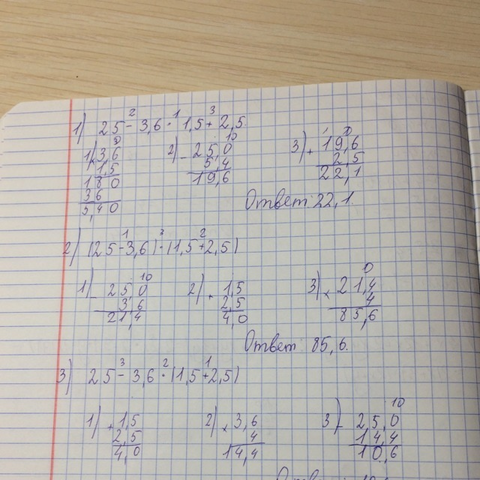 1) 25 - 3,6 · 1,5 + 2,5
2 1 3
1) 3,6
1,5
180
36
5,40
2) - 25,0
5,4
19,6
3) + 19,6
2,5
22,1
Ответ 22,1.
2) (25 - 3,6) · (1,5 + 2,5)
1 3 2
1) - 25,0
3,6
21,4
2) + 1,5
2,5
4,0
3) × 21,4
4
85,6
Ответ 85,6.
3) 25 - 3,6 · (1,5 + 2,5)
3 2 1
1) + 1,5
2,5
4,0
2) × 3,6
4
14,4
3) - 25,0
14,4
10,6